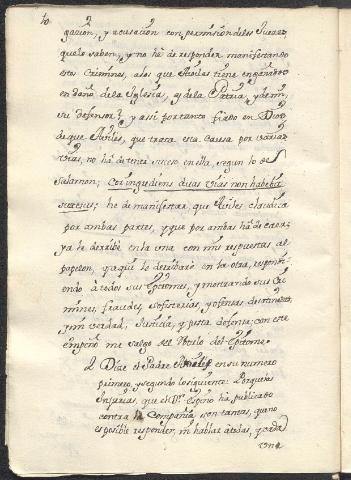 10
gacion, y acusacion con permission de los Juezes
que lo saben, y no ha de responder manifestando
estos Crimines, a los que Aviles tiene engañados
en daño de la Iglesia, y de la Patria, y de mi,
su defensor? y assi por tanto fiado en Dios
de que Aviles, que trata esta causa por varias
vias, no ha de tener suceso en ella, segun lo de
Salamon; Cor ingrediens duas vias non habebit
sucesus; he de manifestar, que Aviles claudica
por ambas partes, y que por ambas ha de caer,
ya le derribè en la una con mis respuestas al
papelon, y aqui le derribarè en la otra, respondi-
endo à todos sus Epitomes, y mostrando sus Cri-
mines, fraudes, sofisterias, y ofensas
y mi verdad, Justicia, y justa defensa; con este
empeño me valgo del titulo del Epitome.
2 Dize el Padre Aviles en su numero
primero, y segundo lo siguiente: Porque las
Injurias, que el Dr. Espino ha publicado
contra la Compañia son tantas, que no
es posible responder, ni hablar à todas, y cada
una